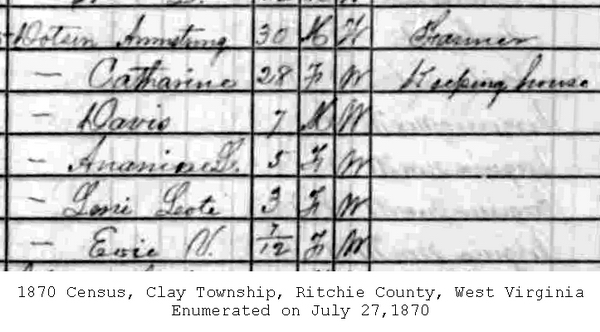 Dotson Armstrong 30 M W Farmer
— Catharine 28 F W Keeping house
— Davis 7 M W
— 5 F W
— 3 F W
— Evie V. 7/12 F W
1870 Census, Clay Township, Ritchie County, West Virginia
Enumerated on July 27,1870